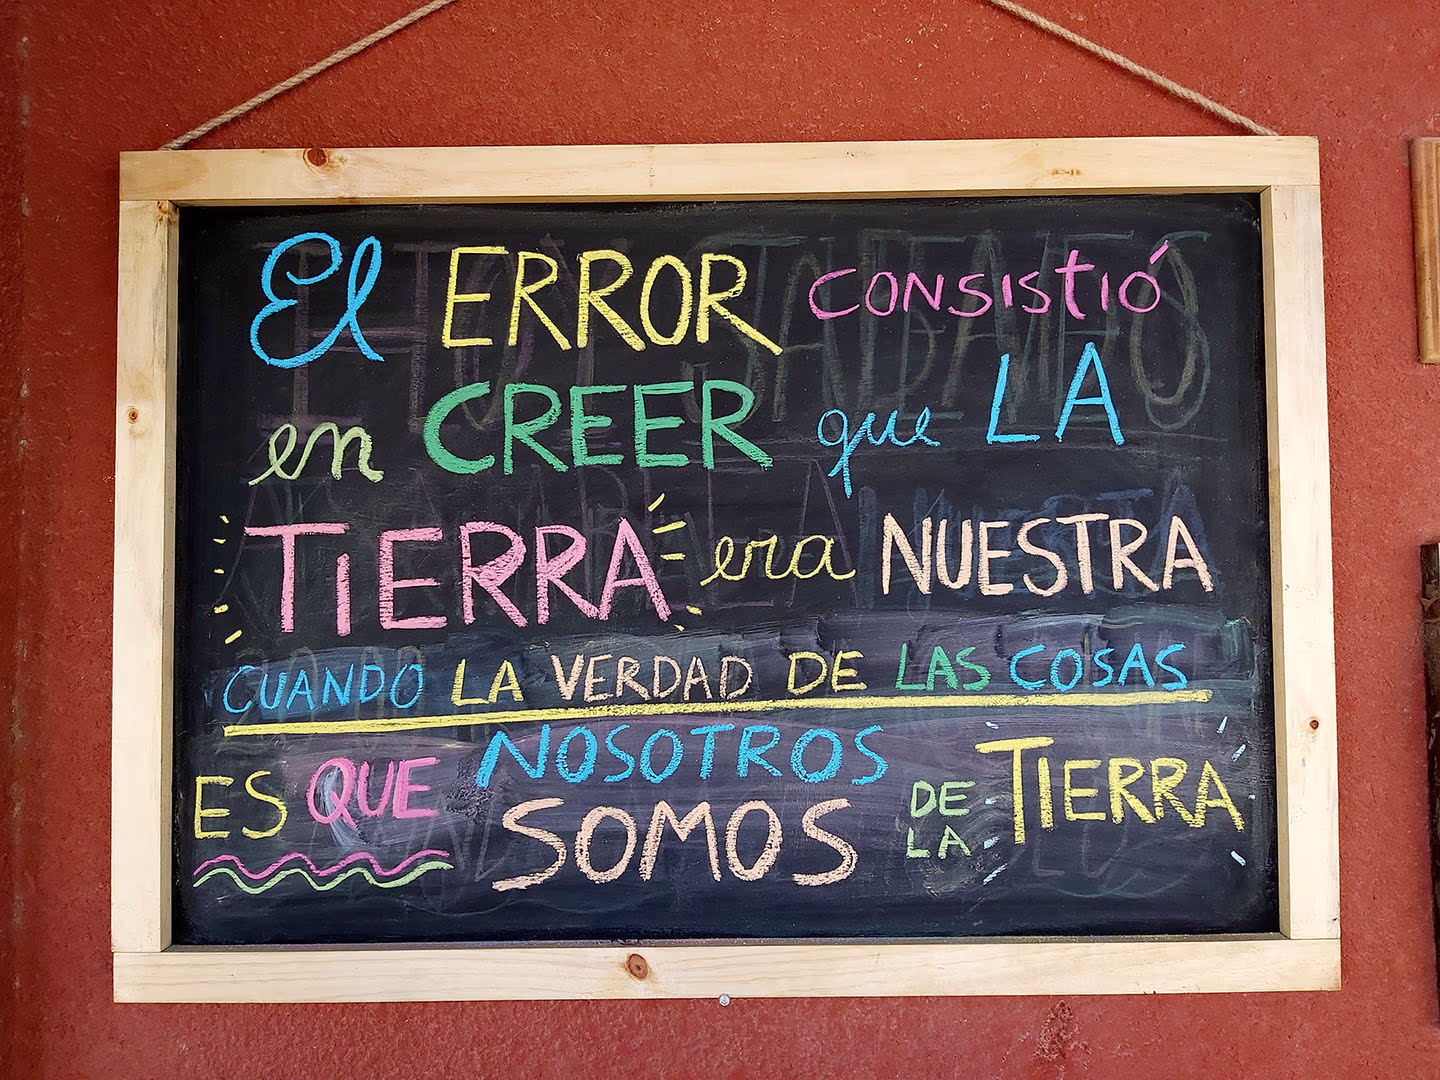 El ERROR CONSISTIÓ
en CREER que LA
TIERRA era NUESTRA
CUANDO LA VERDAD DE LAS COSAS
ES QUE NOSOTROS SOMOS DE LA TIERRA